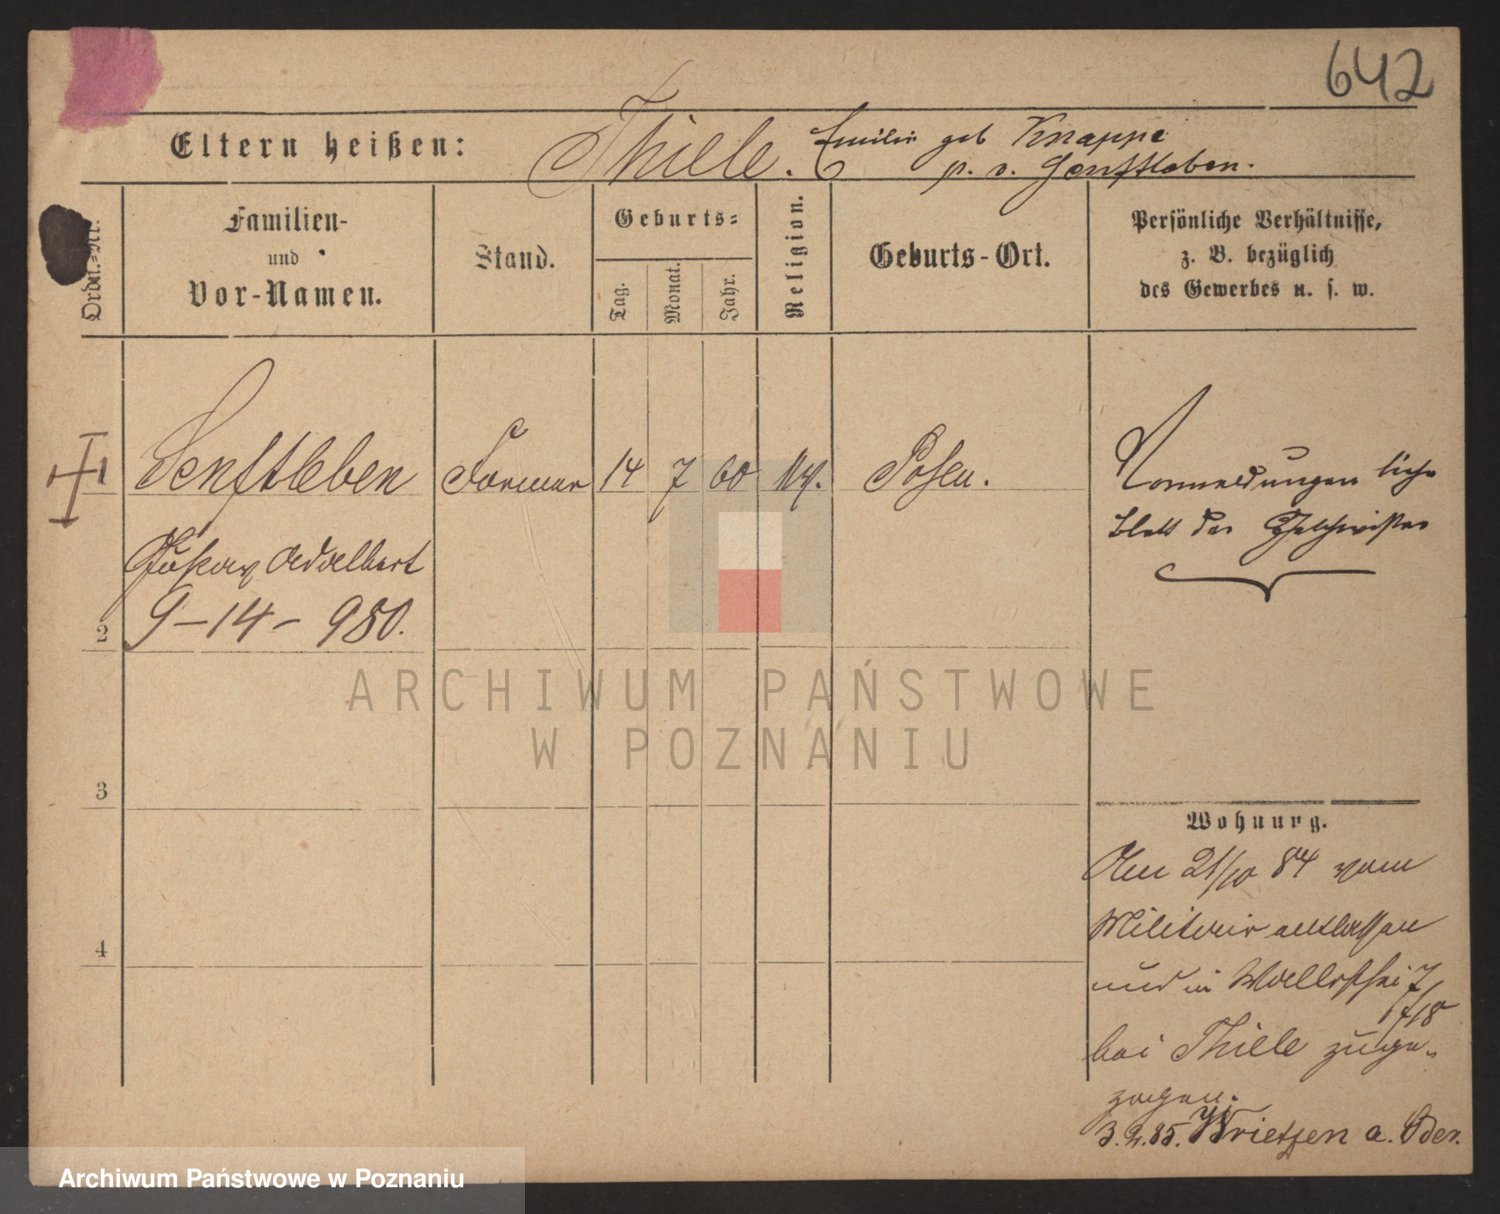 642
Eltern heißen: Thiele. Emilie geb Knappe
p. v. Senftleben.
Ordn.-Nr.
Familien-
und
Vor-Namen.
Stand.
Geburts=
Tag. Monat. Jahr.
Religion.
Geburts-Ort.
Persönliche Verhältnisse,
z. B. bezüglich
des Gewerbes u. s. w.
1 Senftleben Former 14 7 60 Posen.
Gustav Adalbert
2 9-14-980.
Vormeldungen siehe
Blatt der Geschwister
3
4
Wohnung.
Am 21/10 84 vom
Militair entlassen
und in Wallischei 7
bei Thiele zuge-
zogen.
3.2.85. Wrietzen a. Oder.
ARCHIWUM PAŃSTWOWE
W POZNANIU
Archiwum Państwowe w Poznaniu